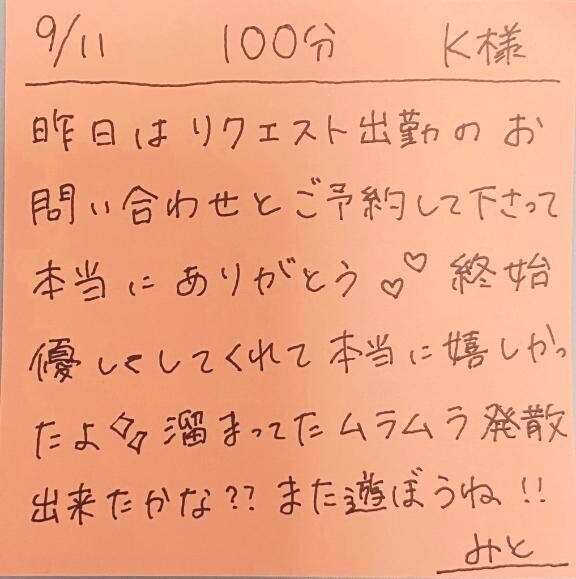 9/11 100分 K様
昨日はリクエスト出勤のお
問い合わせとご予約して下さって
本当にありがとう♡♡ 終始
優しくしてくれて本当に嬉しかっ
たよ 溜まってたムラムラ発散
出来たかな?? また遊ぼうね!!
みと